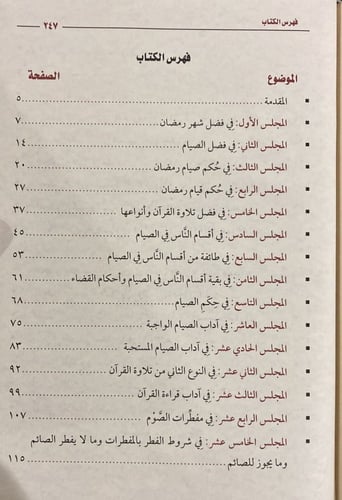 فهرس الكتاب ٢٤٧
فهرس الكتاب
الموضوع الصفحة
▪ المقدمة ٥
▪ المجلس الأول: في فضل شهر رمضان ٧
▪ المجلس الثاني: في فضل الصيام ١٤
▪ المجلس الثالث: في حُكم صيام رمضان ٢٠
▪ المجلس الرابع: في حُكم قيام رمضان ٢٧
▪ المجلس الخامس: في فضل تلاوة القرآن وأنواعها ٣٧
▪ المجلس السادس: في أقسام النَّاس في الصيام ٤٥
▪ المجلس السابع: في طائفة من أقسام النَّاس في الصيام ٥٣
▪ المجلس الثامن: في بقية أقسام النَّاس في الصيام وأحكام القضاء ٦١
▪ المجلس التاسع: في حِكَمِ الصيام ٦٨
▪ المجلس العاشر: في آداب الصيام الواجبة ٧٥
▪ المجلس الحادي عشر: في آداب الصيام المستحبة ٨٣
▪ المجلس الثاني عشر: في النوع الثاني من تلاوة القرآن ٩٢
▪ المجلس الثالث عشر: في آداب قراءة القرآن ٩٩
▪ المجلس الرابع عشر: في مفطِّرات الصَّوْم ١٠٧
▪ المجلس الخامس عشر: في شروط الفطر بالمفطرات وما لا يفطر الصائم
وما يجوز للصائم ١١٥